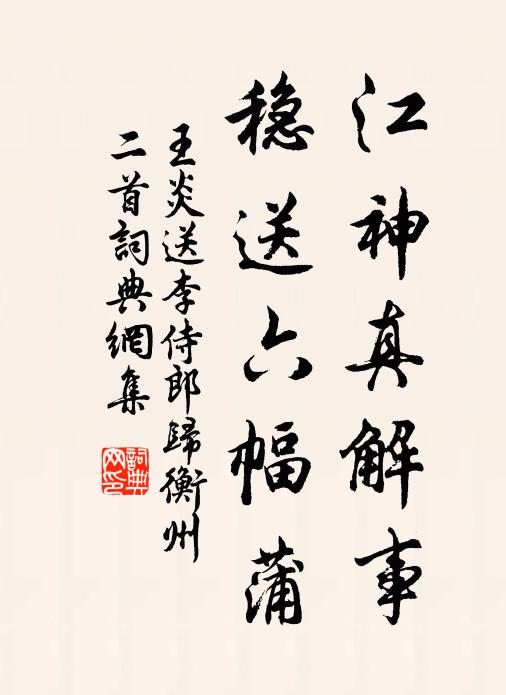 江神真解事
稳送六幅蒲
王炎送李侍郎歸衡州
二首詞典網集
詞典网印